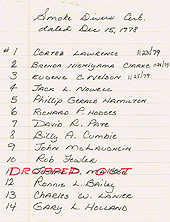 Smoke Divers Cert.
dated Dec 15, 1978
#1 Cortez Lawrence 1/23/79
2 Brenda Nishiyama Clarke
3 Eugene C. Nelson 1/25/79
4 Jack L. Nowell
5 Phillip Gerald Hamilton
6 Richard P. Hodges
7 David R. Pate
8 Billy A. Cumbie
9 John McLaughlin
10 Rob Fowler
11 DROPPED OUT
12 Ronnie L. Bailey
13 Charles W. Lanier
14 Gary L. Holland